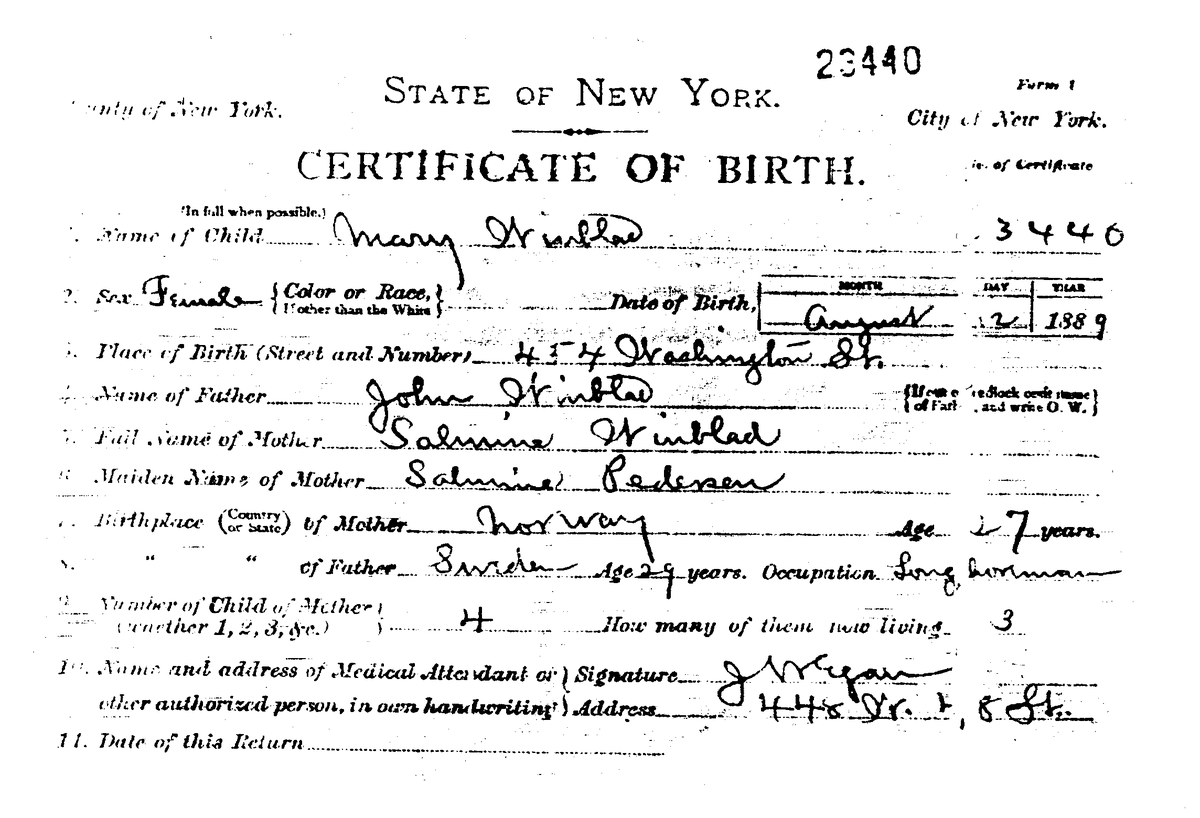 23440
STATE OF NEW YORK.
Form 1
County of New York.
City of New York.
CERTIFICATE OF BIRTH.
No. of Certificate
(In full when possible.)
1. Name of Child Mary Winblad 3440
2. Sex Female {Color or Race, if other than the White} Date of Birth, MONTH August DAY 2 YEAR 1889
3. Place of Birth (Street and Number) 454 Washington St.
4. Name of Father John Winblad {If out of wedlock omit name of Father, and write O. W.}
5. Full Name of Mother Salmine Winblad
6. Maiden Name of Mother Salmine Pedersen
7. Birthplace (Country or State) of Mother Norway Age 27 years.
8. " " of Father Sweden Age 29 years. Occupation Longshoreman
9. Number of Child of Mother
(whether 1, 2, 3, &c.) 4 How many of them now living 3
10. Name and address of Medical Attendant or Signature J W Egan
other authorized person, in own handwriting Address 448 W. 8 St.
11. Date of this Return